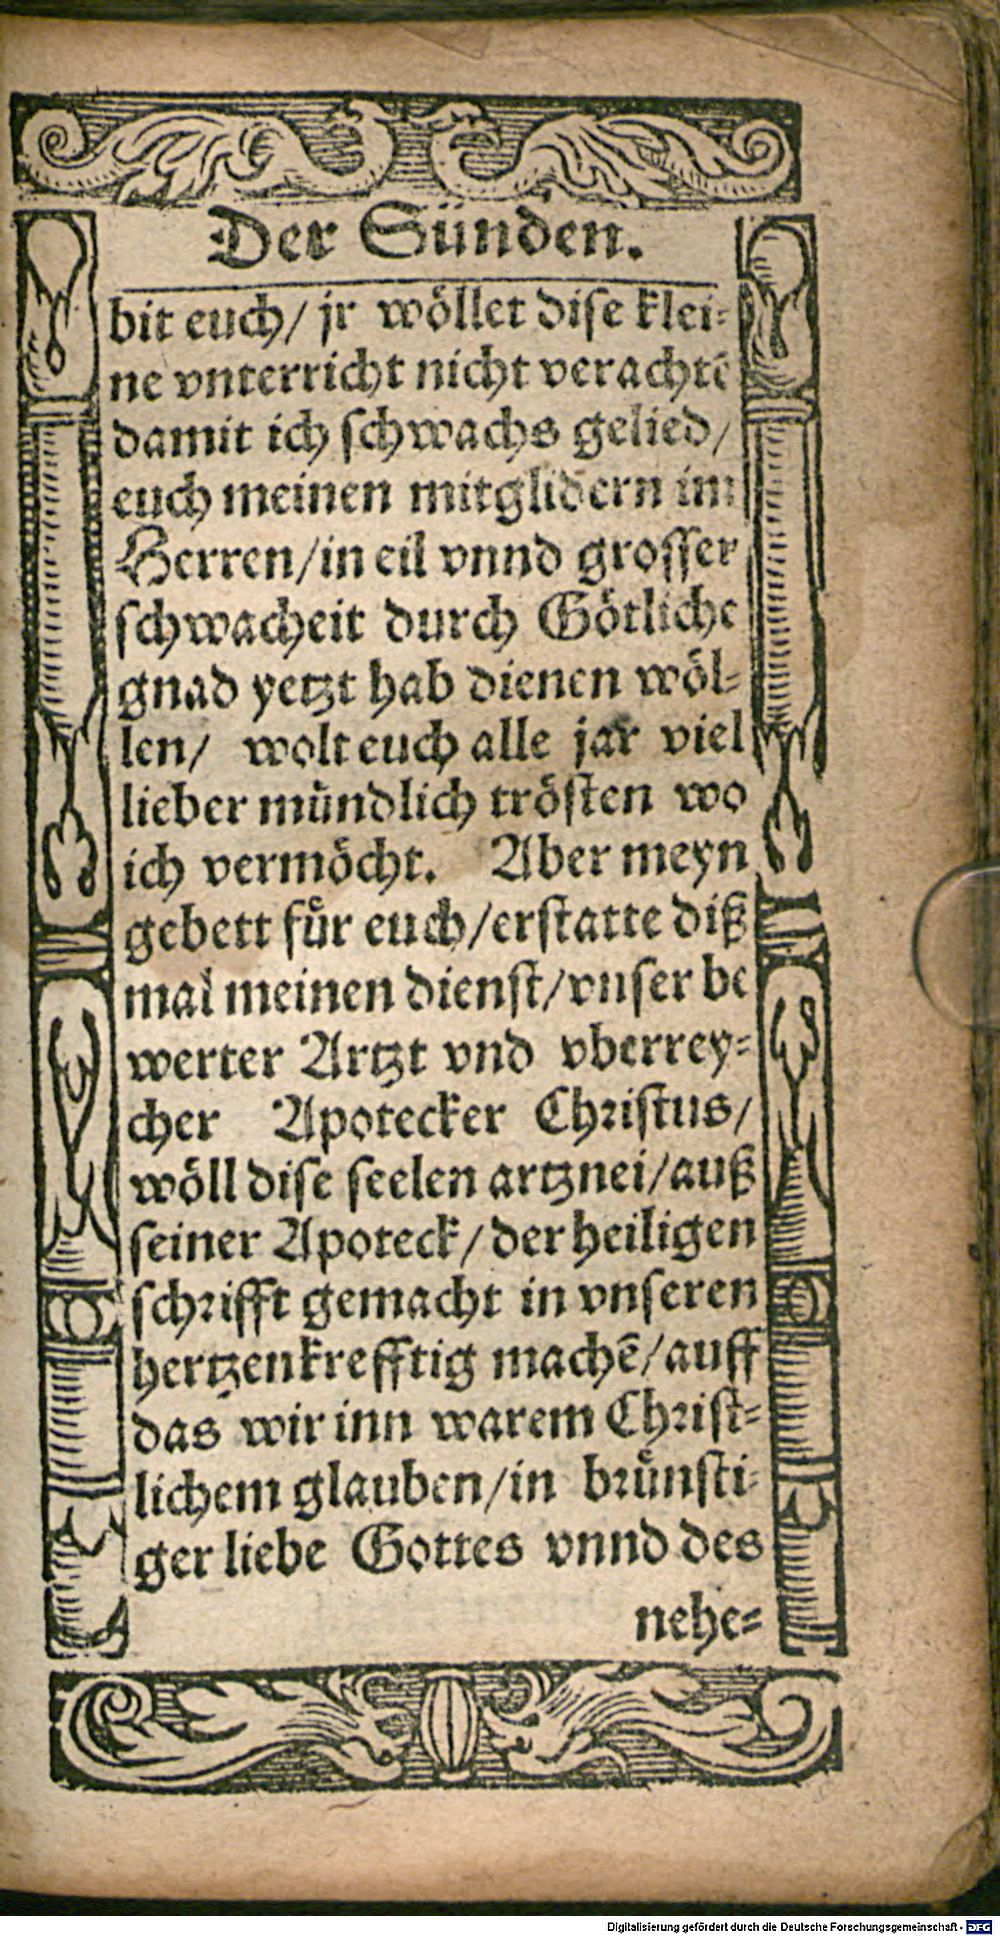 Der Sünden.
bit euch/ jr wöllet dise klei-
ne vnterricht nicht verachtē
damit ich schwachs gelied/
euch meinen mitglidern im
Herren/in eil vnnd grosser
schwacheit durch Götliche
gnad yetzt hab dienen wöl-
len/ wolt euch alle jar viel
lieber mündlich trösten wo
ich vermöcht. Aber meyn
gebett für euch/erstatte diß
mal meinen dienst/vnser be
werter Artzt vnd vberrey-
cher Apotecker Christus/
wöll dise seelen artznei/auß
seiner Apoteck/der heiligen
schrifft gemacht in vnseren
hertzen krefftig machē/auff
das wir inn warem Christ-
lichem glauben/in brünsti-
ger liebe Gottes vnnd des
nehe-
Digitalisierung gefördert durch die Deutsche Forschungsgemeinschaft - DFG